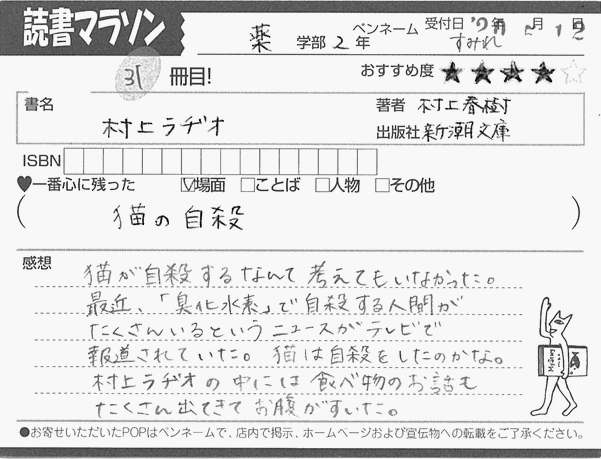 読書マラソン
薬 学部 2 年
ペンネーム すみれ
受付日 年 月 日
31 冊目!
おすすめ度 ★★★★☆
書名 村上ラヂオ
著者 村上春樹
出版社 新潮文庫
ISBN
♥一番心に残った ☑場面 □ことば □人物 □その他
(猫の自殺)
感想
猫が自殺するなんて考えてもいなかった。
最近、「臭化水素」で自殺する人間が
たくさんいるというニュースがテレビで
報道されていた。猫は自殺をしたのかな。
村上ラヂオの中には食べ物のお話も
たくさん出てきてお腹がすいた。
●お寄せいただいたPOPはペンネームで、店内で掲示、ホームページおよび宣伝物への転載をご了承ください。